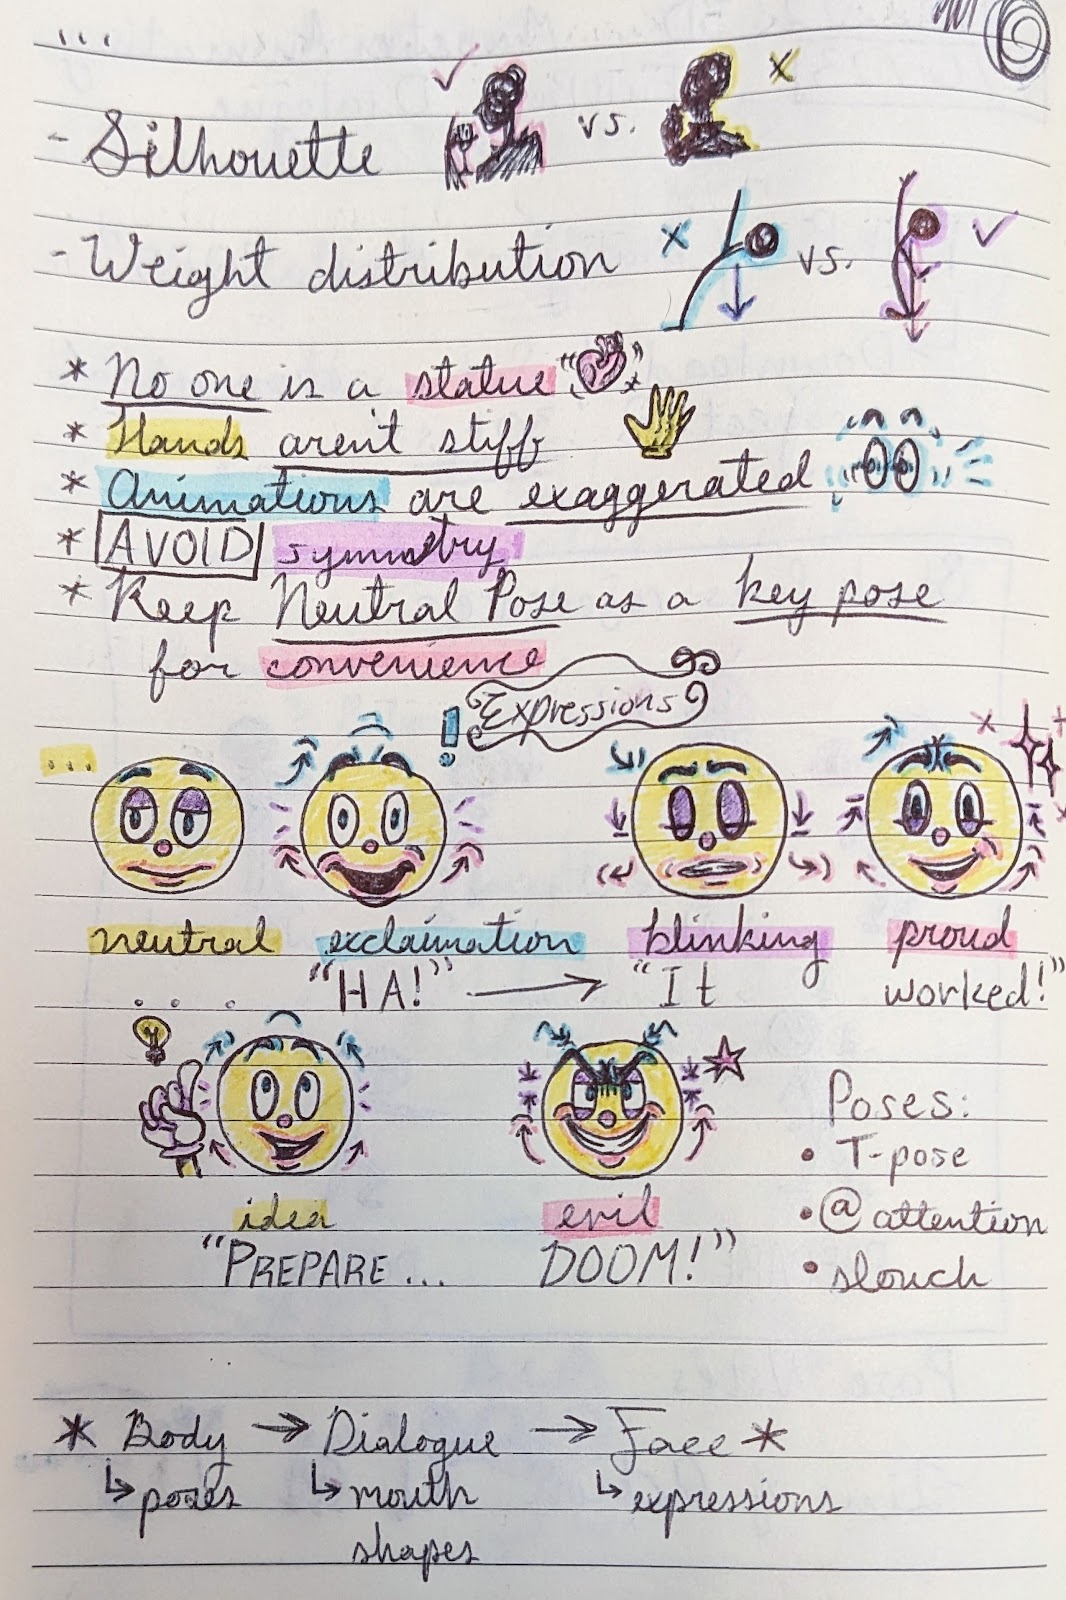 ...
- Silhouette ✓ vs. x
- Weight distribution x vs. ✓
* No one is a statue " "
* Hands aren't stiff
* Animations are exaggerated
* AVOID symmetry
* Keep Neutral Pose as a key pose
for convenience
Expressions
... !
neutral exclaimation blinking proud
... "HA!" → "It worked!"
idea evil
"PREPARE... DOOM!"
Poses:
• T-pose
• @ attention
• slouch
* Body → Dialogue → Face *
↳ poses ↳ mouth ↳ expressions
shapes